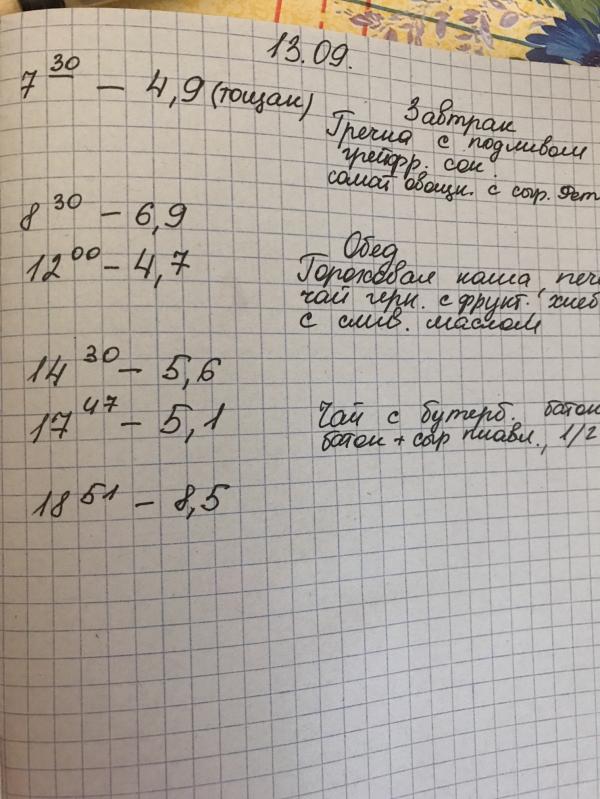 13.09.
7 30 — 4,9 (тощак)
Завтрак
Гречка с подливом
грейпфр. сок
салат овощн. с сыр. Фет
8 30 — 6,9
12 00 — 4,7
Обед
Гороховая каша, печ
чай черн. с фрукт. хлеб
с слив. маслом
14 30 — 5,6
17 47 — 5,1
Чай с бутерб. батон
батон + сыр плавл., 1/2
18 51 — 8,5